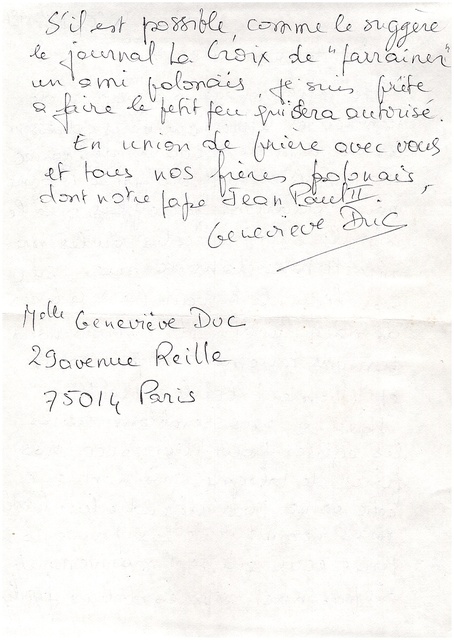 S'il est possible, comme le suggère
le journal La Croix de "parrainer"
un ami polonais, je suis prête
a faire le petit peu qui sera autorisé.
En union de prière avec vous
et tous nos frères polonais,
dont notre pape Jean Paul II.
Geneviève Duc
Melle Geneviève Duc
29 avenue Reille
75014 Paris